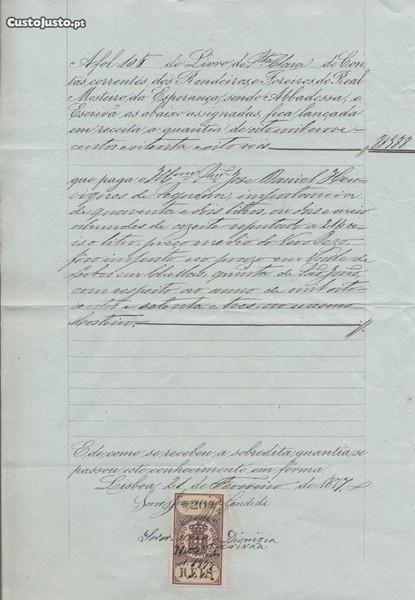 CustoJusto.pt
A fol 108 do Livro de Sta Clara de Con-
tas correntes dos Rendeiros, e Foreiros do Real
Mosteiro da Esperança, sendo Abbadessa, e
Escrivã, as abaixo assignadas, fica lançada
em receita a quantia de oito mil nove
centos oitenta e oito reis
que paga o Illmo Snr José Manoel Hen-
riques de, importancia
de quarenta e dois litros, ou dois e meio
almudes de azeite reputado a 214 re-
is o litro, preço medio do
foro imposto no prazo em
de, quinta de São João,
com respeito ao anno de mil oito-
centos e setenta e tres, ao mesmo
Mosteiro.
E de como se recebeu a sobredita quantia se
passou este conhecimento em fórma
Lisboa, 21 de Fevereiro de 1877.
Soror Candida
Soror Dionizia
Escrivãa
20
REIS